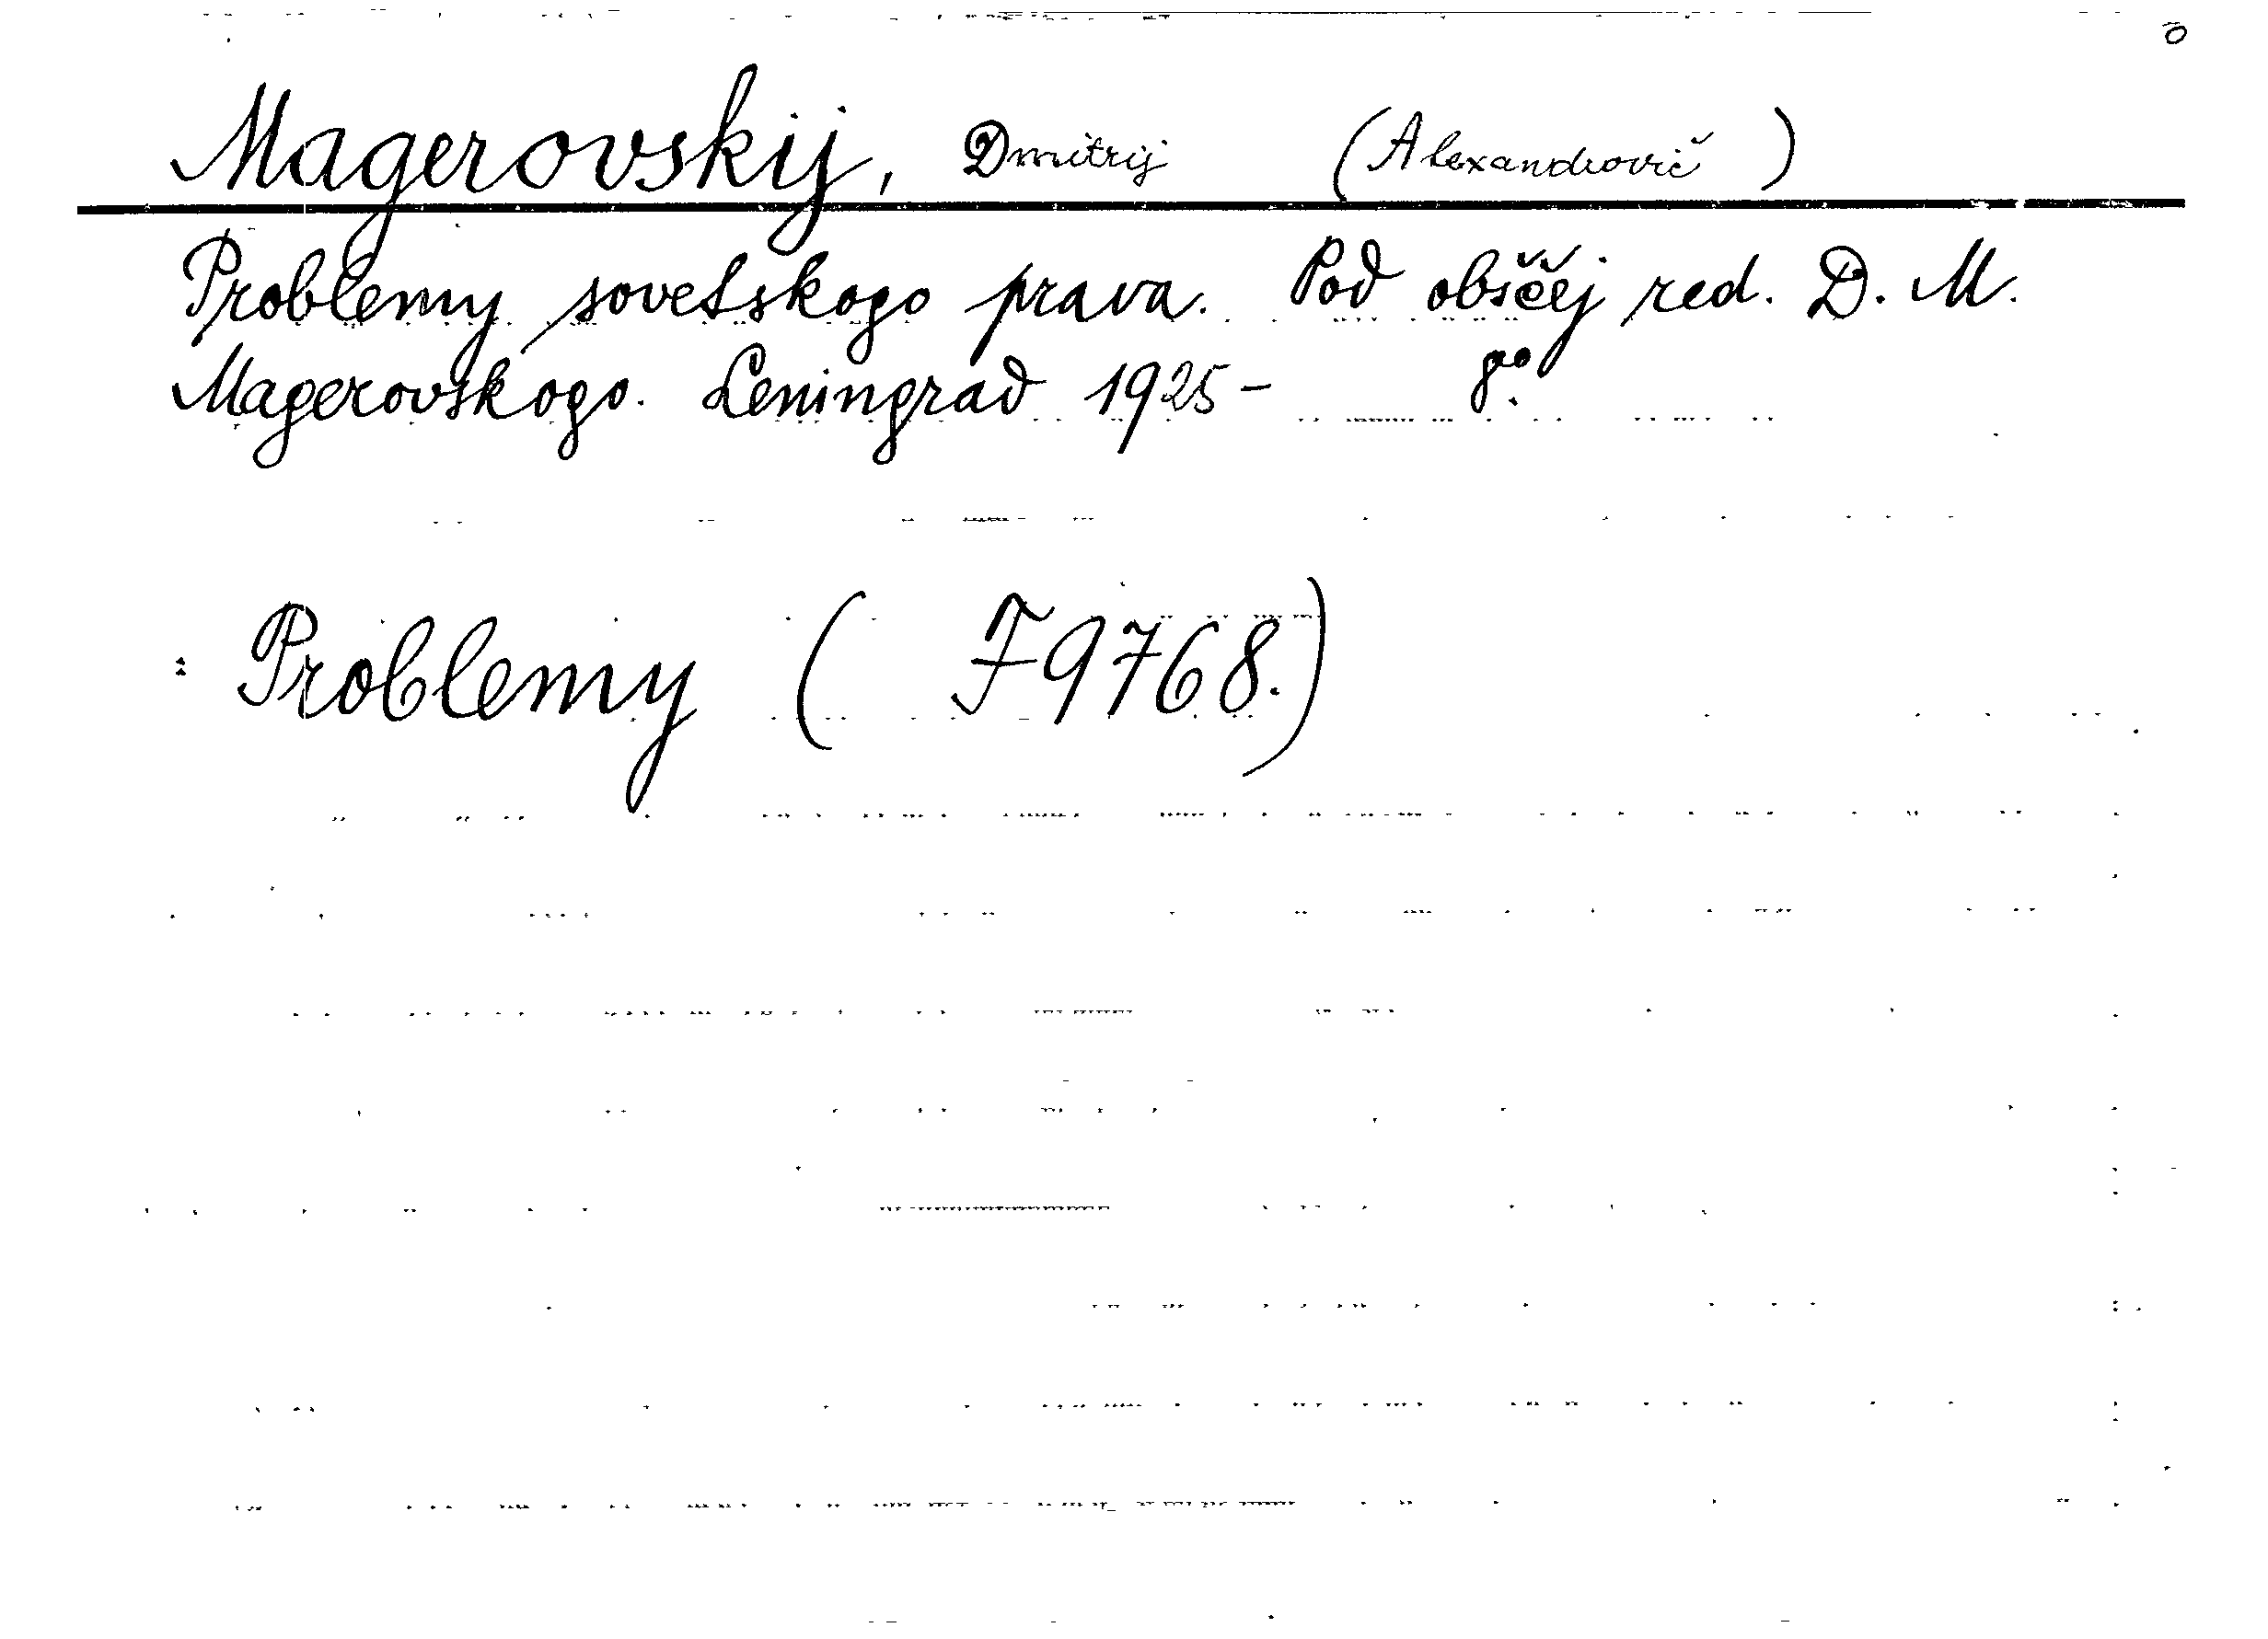 Magerovskij, Dmitrij (Alexandrovič)
Problemy sovetskogo prava. Pod obščej red. D. M.
Magerovskogo. Leningrad 1925- 8°.
: Problemy ( F9768.)